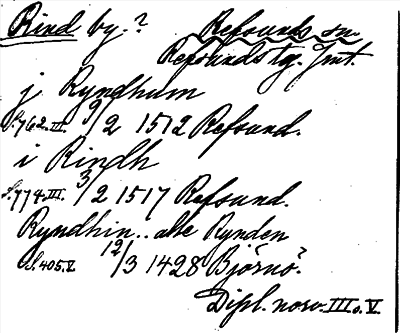 Rind by.? Refsunds sn.
Refsunds tg. Jmt.
j Ryndhum
S. 762. III. 9/2 1512 Refsund.
i Rindh
S. 774. III. 3/2 1517 Refsund.
Ryndhin.. alle Rynden
S. 405. V. 12/3 1428 Björnö?
Dipl. norv. III o. V.